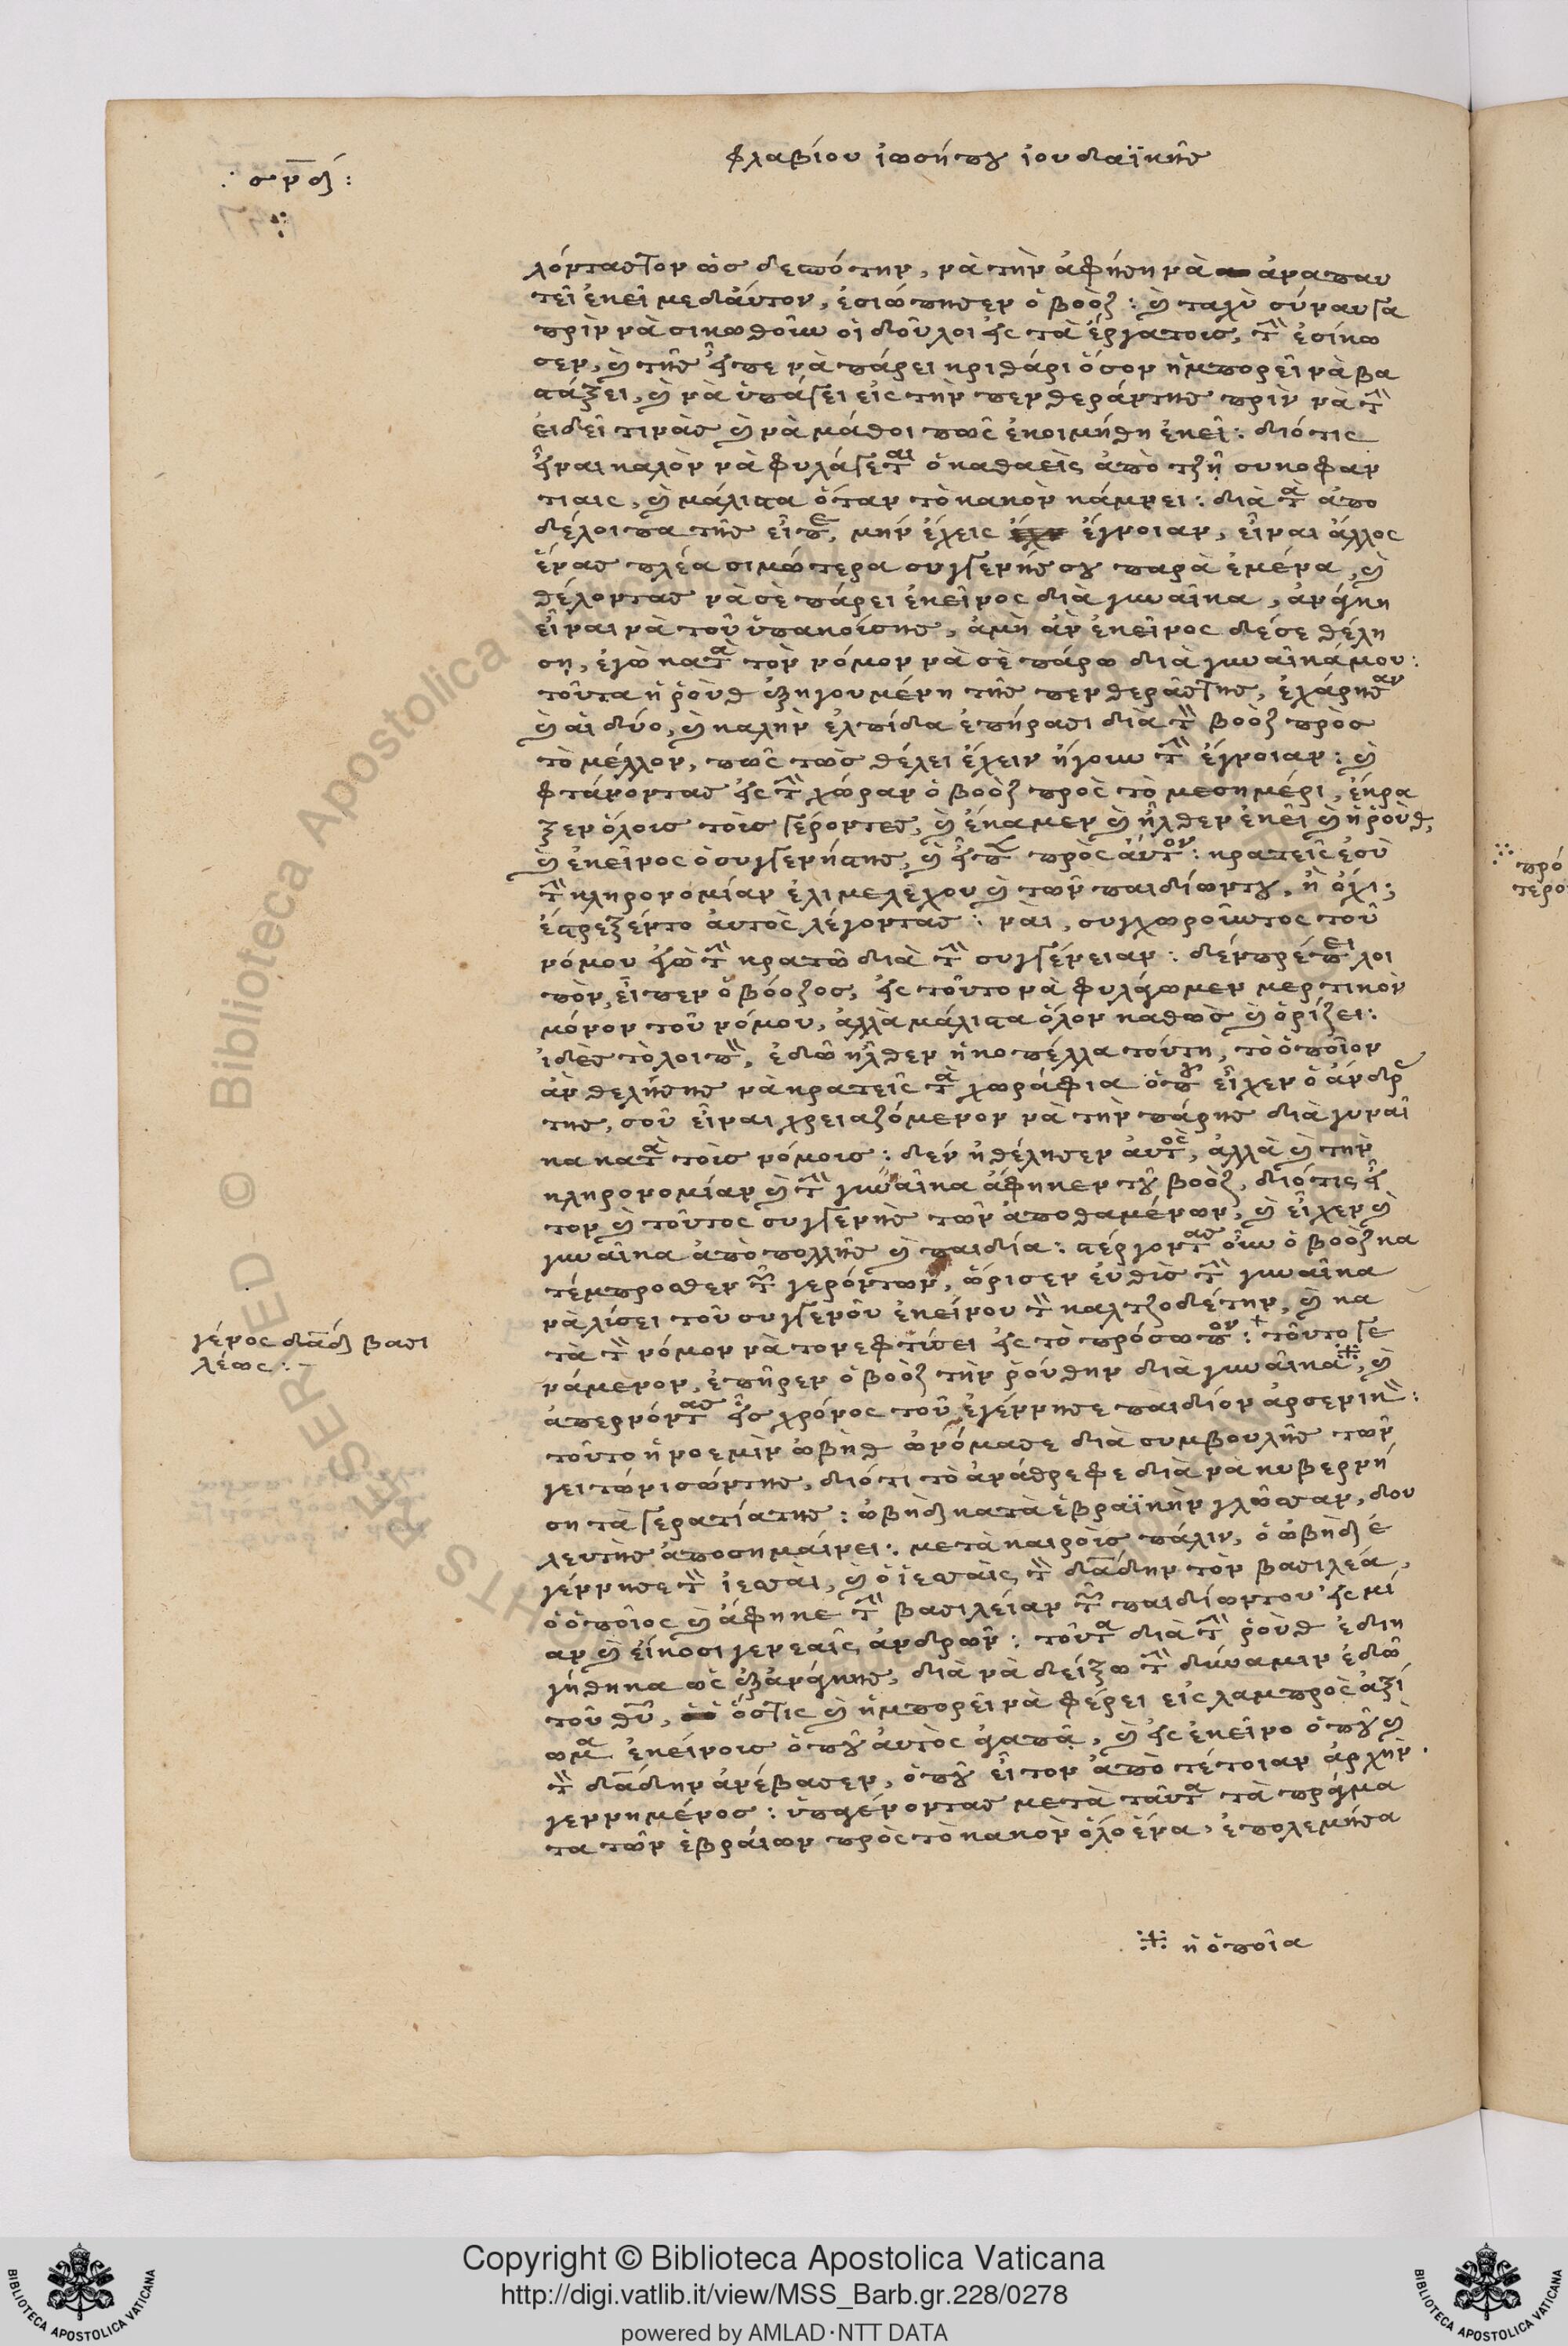 φλαβίου ἰωσήπου ἰουδαϊκῆς
λόντας τον ὡς δεσπότην, νὰ τὴν ἀφήσῃ νὰ ἀναπαυ
τεῖ ἐκεῖ μεδἄυτον, ἐσιώπησεν ὁ βοὸζ: καὶ ταχὺ σύναυγα
πρὶν νὰ σικωθοῦν οἱ δοῦλοι εἰς τὰ ἔργατοις, τὴν ἐσίκω
σεν, καὶ τῆς εἶπε νὰ πάρει κριθάρι ὅσον ἠμπορεῖ νὰ βα
στάξει, καὶ νὰ ὑπάγει εἰς τὴν πενθεράντης πρὶν νὰ τὴν
ειδεῖ τινὰς καὶ νὰ μάθοι πῶς ἐκοιμήθη ἐκεῖ: διότις
εἶναι καλὸν νὰ φυλάγεται ὁ καθαεὶς ἀπὸ τζῆ συκοφαν
τιαις, καὶ μάλιστα ὅταν τὸ κακὸν κάμνει: διὰ τὰ ἀπο
δέλοιπα τῆς εἶπε, μὴν ἔχεις ἔγνοιαν, εἶναι ἄλλος
ἕνας πλέα σιμώτερα συγγενήςσου παρὰ ἐμένα, καὶ
θέλοντας νὰ σὲ πάρει ἐκεῖνος διὰ γυναῖκα, ἀνάγκη
εἶναι νὰ τοῦ ὑπακοίσης, ἀμὴ ἂν ἐκεῖνος δέσε θέλη
ση, ἐγὼ κατὰ τὸν νόμον νὰ σὲ πάρω διὰ γυναῖκάμου:
τοῦτα ἡ ῥοὺθ ἐξηγουμένη τῆς πενθερᾶςτης, ἐχάρησαν
καὶ αἱ δύο, καὶ καλὴν ἐλπίδα ἐπήρασι διὰ τὸν βοὸζ πρὸς
τὸ μέλλον, πῶς τὼς θέλει ἔχειν ἤγουν τὴν ἔγνοιαν: καὶ
φτάνοντας εἰς τὴν χώραν ὁ βοὸζ πρὸς τὸ μεσημέρι, ἔκρα
ξεν ὅλοις τοὶς γέροντες, καὶ ἔκαμεν καὶ ἦλθεν ἐκεῖ καὶ ἡ ῥοὺθ,
καὶ ἐκεῖνος ὁ συγγενήςτης, καὶ εἶπε πρὸς ἀὐτον: κρατεῖς ἐσὺ
τὴν κληρονομίαν ἐλιμελέχου καὶ τῶν παιδίωντου, ἢ ὄχι;
ἔστρεξέντο ἀυτὸς λέγοντας: ναὶ, συγχωροῦντος τοῦ
νόμου ἐγὼ τὴν κρατῶ διὰ τὴν συγγένειαν: δένπρέπει λοι
πὸν, εἶπεν ὁ βόοζος, εἰς τοῦτο νὰ φυλάγωμεν μερτικὸν
μόνον τοῦ νόμου, ἀλλὰ μάλιστα ὅλον καθὼς καὶ ὁρίζει:
ἰδὲς τὸ λοιπὸν, ἐδῶ ἦλθεν ἡ κοπέλλα τούτη, τὸ ὁποῖον
ἂν θελήσης νὰ κρατεῖς τὰ χωράφια ὁποῦ εἶχεν ὁ ἄνδρας
της, σοῦ εἶναι χρειαζόμενον νὰ τὴν πάρης διὰ γυναῖ
κα κατὰ τοὶς νόμοις: δὲν ἠθέλησεν ἀυτὸς, ἀλλὰ καὶ τὴν
κληρονομίαν καὶ τὴν γυναῖκα ἄφηκεν τοῦ βοὸζ, διότις εἶ
τον καὶ τοῦτος συγγενὴς τῶν ἀποθαμένων, καὶ εἶχεν καὶ
γυναῖκα ἀπὸ πολλῆς καὶ παιδία: στέργοντας οὖν ὁ βοὸζ κα
τέμπροσθεν τῶν γερόντων, ὥρισεν ἐυθὶς τὴν γυναῖκα
νὰ λίσει τοῦ συγγενοῦ ἐκείνου τὸν καλτζοδέτην, καὶ κα
τὰ τὸν νόμον νὰ τονεφτύσει εἰς τὸ πρόσωπον: τοῦτο γε
νάμενον, ἐπῆρεν ὁ βοὸζ τὴν ῥούθην διὰ γυναῖκα, καὶ
ἀπερνόντας εἷς χρόνος τοῦ ἐγέννησε παιδίον ἀρσενικὸν:
τοῦτο ἡ νοεμὶν ὠβὴδ ὠνόμασε διὰ συμβουλῆς τῶν
γειτώνισώντης, διότι τὸ ἀνάθρεφε διὰ νὰ κυβερνή
ση τὰ γερατίατης: ὠβὴδ κατὰ ἑβραϊκὴν γλῶσσαν, δου
λευτὴς ἀποσημαίνει: μετὰ καιροὶς πάλιν, ὁ ὠβὴδ ἐ
γέννησε τὸν ἰεσσὰι, καὶ ὁ ἰεσσὰις τὸν δᾱδην τὸν βασιλέα,
ὁ ὁποῖος καὶ ἄφηκε τὴν βασιλείαν τῶν παιδίωντου εἰς μί
αν καὶ εἴκοσι γενεαῖς ἀνδρῶν: τοῦτα διὰ τὴν ῥοὺθ ἐδιη
γήθηκα ὡς ἐξανάγκης, διὰ νὰ δείξω τὴν δύναμιν ἐδῶ
τοῦ θῦ, ὅστις καὶ ἠμπορεῖ νὰ φέρει εἰς λαμπρὸς ἀξί
ωμα ἐκείνοις ὁποῦ ἀυτὸς ἀγαπᾷ, καὶ εἰς ἐκεῖνο ὁποῦ καὶ
τὸν δᾱδην ἀνέβασεν, ὁποῦ εἶτον ἀπὸ τέτοιαν ἀρχὴν
γεννημένος: ὑπαγένοντας μετὰ ταῦτα τὰ πράγμα
τα τῶν ἑβράιων πρὸς τὸ κακὸν ὁλόἕνα, ἐπολεμήσα
ἡ ὁποῖα
γένος δᾱδ βασι
λέως:
πρό
τερο
Copyright © Biblioteca Apostolica Vaticana
http://digi.vatlib.it/view/MSS_Barb.gr.228/0278
powered by AMLAD·NTT DATA